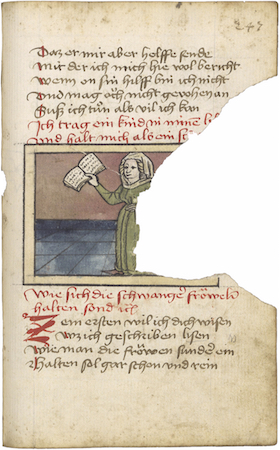 247
Daz er mir aber helffe sende
Mit der ich mich hie wol bericht
Wenn on sin hilff bin ich nicht
Vnd mag och nicht gevohen an
Suß ich tůn als vil ich kan
Ich trag ein kind in minem
Vnd halt mich als ein
Wie sich die schwangeren fröwen
halten sond
Zem ersten wil ich dich wisen
Waz ich geschriben lisen
Wie man die fröwen sunder
Halten sol gar schon vnd rein